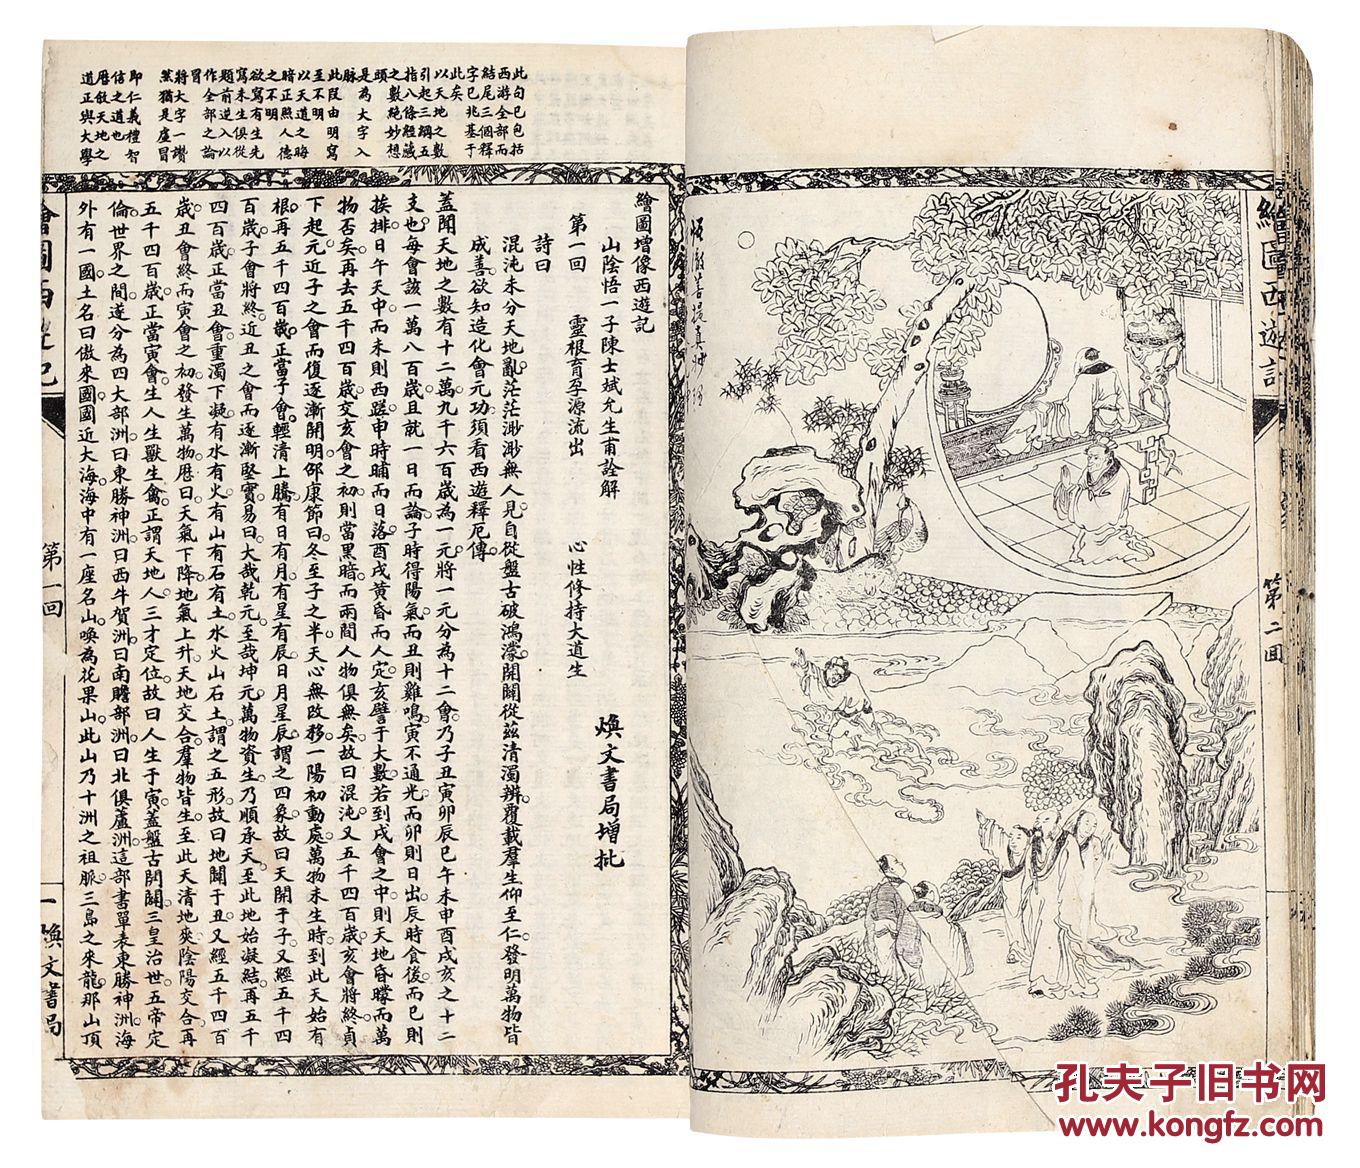 繪圖西遊記
第二回
悟徹菩提真妙理
此句已包括
西游全部而
結尾三個釋
字已兆基于
此矣
以天地之數
引起三綱五
指八條經藏
之數絕妙想
頭
是為大字入
脉
此段由明寫
至不明
以天道之晦
暗正照人德
之不明
欲寫有生先
寫未生俱從
題前逆入以
作全部之論
冒
將大字一讚
猶是虛冒
即仁義禮智
信之道也
曆敘天地之
道正與大學
繪圖增像西遊記
山陰悟一子陳士斌允生甫詮解 煥文書局增批
第一回 靈根育孕源流出 心性修持大道生
詩曰
混沌未分天地亂。茫茫渺渺無人見。自從盤古破鴻濛。開闢從茲清濁辨。覆載羣生仰至仁。發明萬物皆
成善。欲知造化會元功。須看西遊釋厄傳。
蓋聞天地之數。有十二萬九千六百歲為一元。將一元分為十二會。乃子丑寅卯辰巳午未申酉戌亥之十二
支也。每會該一萬八百歲。且就一日而論。子時得陽氣。而丑則雞鳴。寅不通光。而卯則日出。辰時食後。而巳則
挨排。日午天中。而未則西蹉。申時晡而日落酉。戌黃昏而人定亥。譬于大數。若到戌會之中。則天地昏曚而萬
物否矣。再去五千四百歲。交亥會之初。則當黑暗。而兩間人物俱無矣。故曰混沌。又五千四百歲。亥會將終。貞
下起元。近子之會。而復逐漸開明。邵康節曰。冬至子之半。天心無改移。一陽初動處。萬物未生時。到此天始有
根。再五千四百歲。正當子會。輕清上騰。有日有月有星有辰。日月星辰。謂之四象。故曰天開于子。又經五千四
百歲。子會將終。近丑之會。而逐漸堅實。易曰。大哉乾元。至哉坤元。萬物資生。乃順承天。至此地始凝結。再五千
四百歲。正當丑會。重濁下凝。有水有火有山有石有土。水火山石土。謂之五形。故曰地闢于丑。又經五千四百
歲。丑會終而寅會之初。發生萬物。曆曰。天氣下降。地氣上升。天地交合。羣物皆生。至此天清地爽。陰陽交合。再
五千四百歲。正當寅會。生人生獸生禽。正謂天地人。三才定位。故曰人生于寅。蓋盤古開闢。三皇治世。五帝定
倫。世界之間。遂分為四大部洲。曰東勝神洲。曰西牛賀洲。曰南贍部洲。曰北俱蘆洲。這部書單表東勝神洲。海
外有一國土。名曰傲來國。國近大海。海中有一座名山。喚為花果山。此山乃十洲之祖脈。三島之來龍。那山頂
繪圖西遊記
第一回
一
煥文書局
孔夫子旧书网
www.kongfz.com